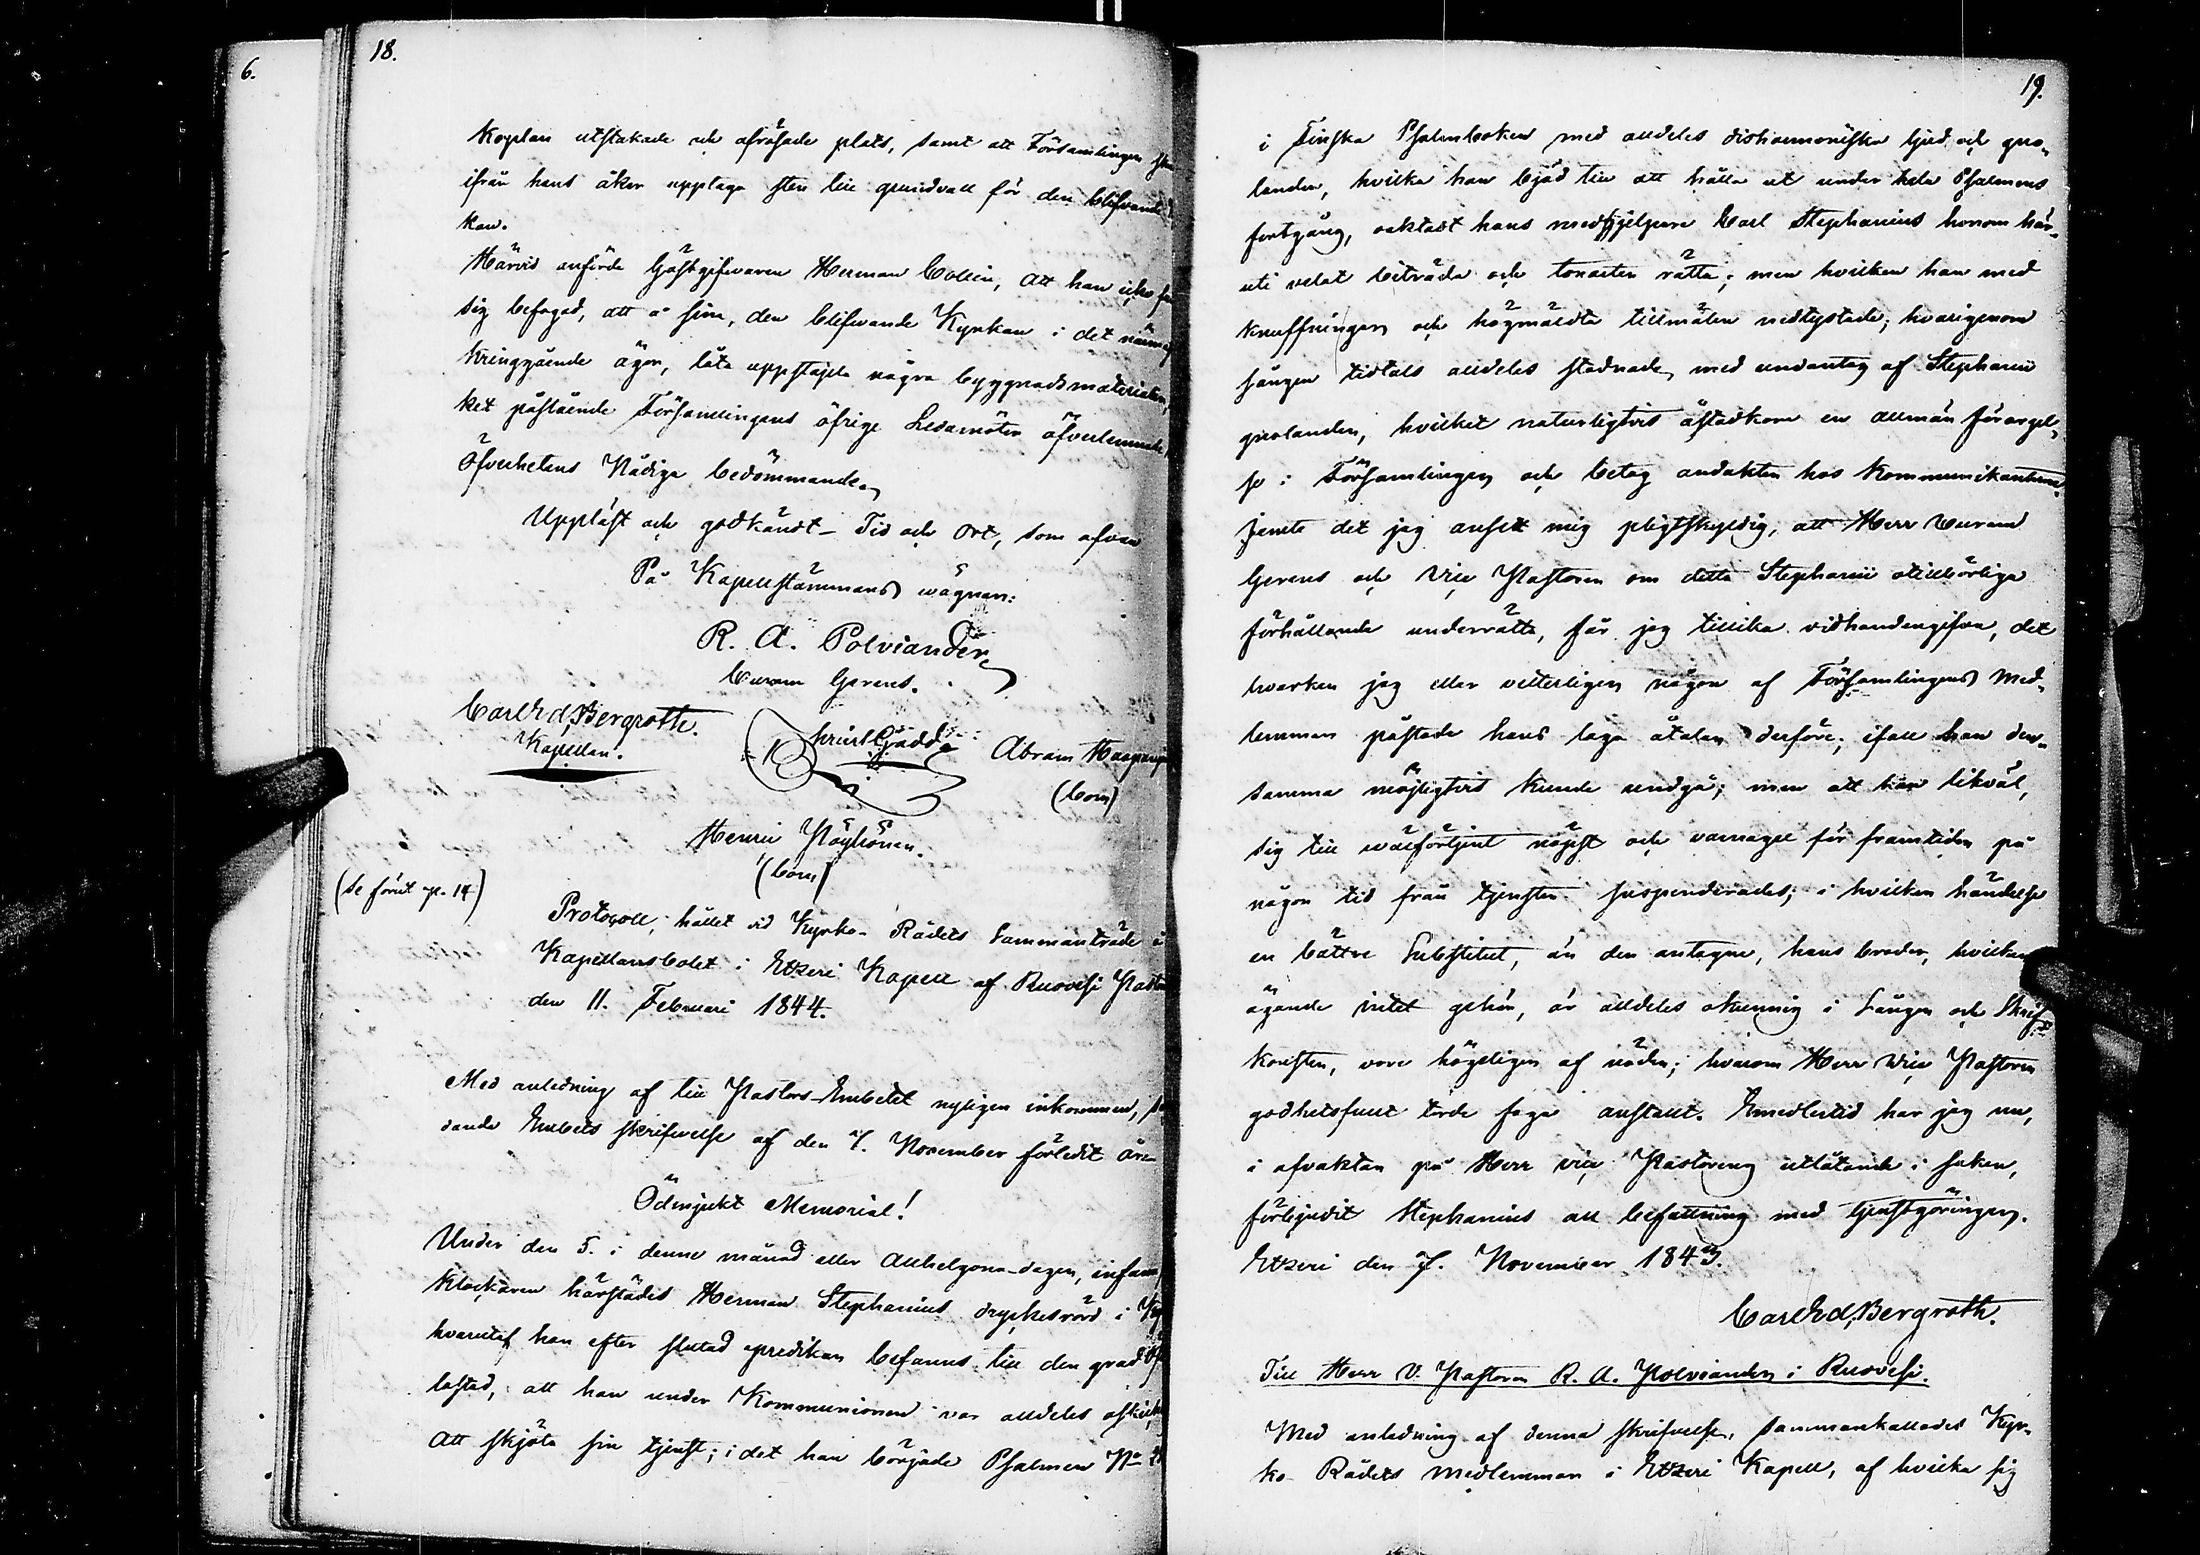 6.
18.
Koplan utstakade och afrösade plats, samt att Församlingen
ifrån hans åker upptaga sten till grundvall för den blifvande
kan.
Härvid anförde Gästgifvaren Herman Collin, att han icke
sig befogad, att å sine, den blifvande Kyrkan i det närmast
kringgående ägor, låta uppstapla några byggnadsmaterialier,
ket påstående Församlingens öfrige Ledamöter öfverlemnade
Öfverhetens Nådiga bedömmande.
Uppläst och godkändt – Tid och Ort, som ofvan
På Kapellstämmans vägnar:
R. A. Polviander,
Curam Gerens.
Carl Ed. Bergroth.
Kapellan.
Krist Gädda
Abram Haapa
(bom)
Henric Pöyhönen.
(bom)
(se förut p. 14)
Protocoll, hållet vid Kyrko-Rådets Sammanträde i
Kapellansbolet i Etzeri Kapell af Ruovesi
den 11. Februari 1844.
Med anledning af till Pastors-Embetet nyligen inkommen,
dande Embets skrifvelse af den 7. November förledit år
Ödmjukt Memorial!
Under den 5. i denne månad eller Allhelgona-dagen, infann
Klockaren härstädes Herman Stephanius dryckesrörd i
hvarutaf han efter slutad predikan befanns till den grad
lastad, att han under Kommunionen var alldeles
att sköta sin tjenst; i det han började Psalmen No
19.
i Finska Psalmboken med alldeles disharmoniska ljud och qvo-
landen, hvilka han bjöd till att hålla ut under hela Psalmens
fortgång, oaktadt hans medhjelpare Carl Stephanius honom här-
uti velat biträda och tonarten rätta; men hvilken han med
knuffningar och högmäldta tillmälen nedtystade; hvarigenom
sången tidtals alldeles stadnade, med undantag af Stephanii
qvolanden, hvilket naturligtvis åstadkom en allmän förargel-
se i Församlingen och betog andakten hos Kommunikanterne.
Jemte det jag ansett mig pligtskyldig, att Herr Curam
Gerens och Vice Pastoren om detta Stephanii otillbörliga
förhållande underrätta, får jag tillika vidhandengifva, det
hvarken jag eller vitterligen någon af Församlingens Med-
lemmar påstode hans laga åtalan derföre; ifall han den-
samma möjligtvis kunde undgå; men att han likväl,
sig till välförtjent näpst och varnagel för framtiden på
någon tid från tjensten suspenderades; i hvilken händelse
en bättre Substitut, än den antagne, hans broder, hvilken
ägande intet gehör, är alldeles okunnig i Sången och Skrif-
konsten, vore högeligen af nöden; hvarom Herr Vice Pastoren
godhetsfullt torde foga anstalt. Emedlertid har jag nu,
i afvaktan på Herr Vice Pastorens utlåtande i saken,
förbjudit Stephanius all befattning med tjenstgöringen.
Etzeri den 7. November 1843.
Carl Ed. Bergroth.
Till Herr V. Pastoren R. A. Polviander i Ruovesi.
Med anledning af denna skrifvelse, sammankallades Kyr-
ko-Rådets medlemmar i Etzeri Kapell, af hvilka sig